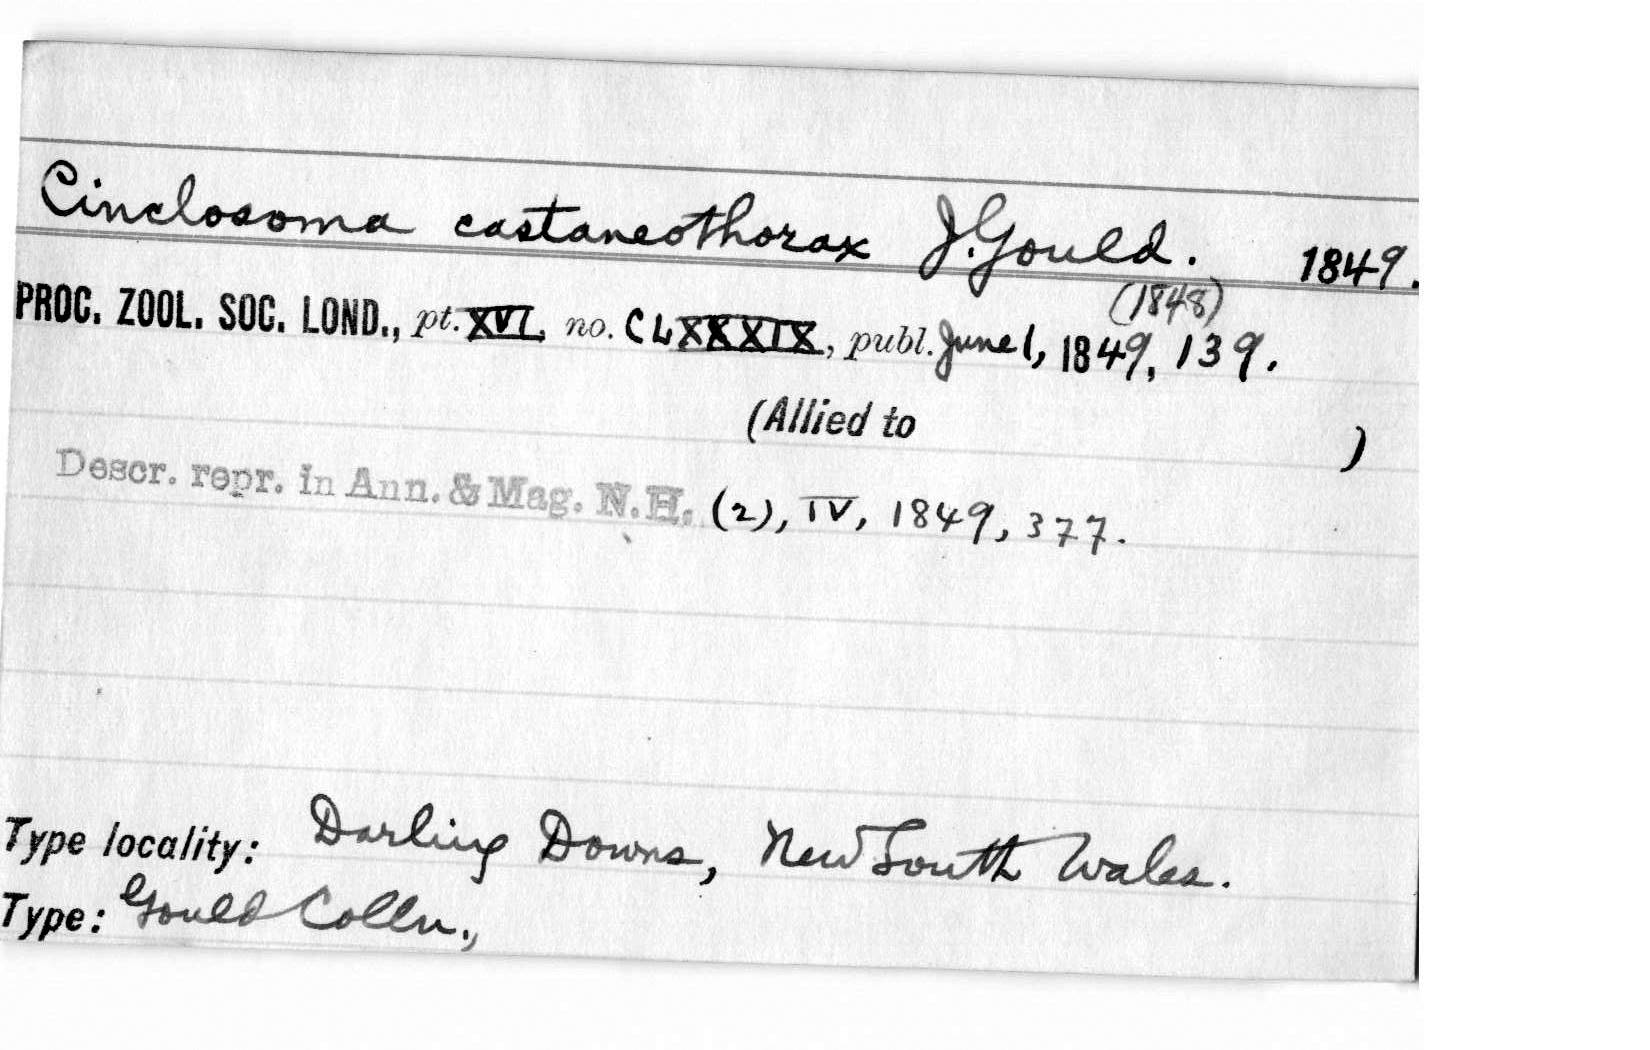 Cinclosoma castaneothorax J. Gould. 1849.
(1848)
PROC. ZOOL. SOC. LOND., pt. XVI, no. CLXXXIX, publ. June 1, 1849, 139.
(Allied to )
Descr. repr. in Ann. & Mag. N.H. (2), IV, 1849, 377.
Type locality: Darling Downs, New South Wales.
Type: Gould Colln.,